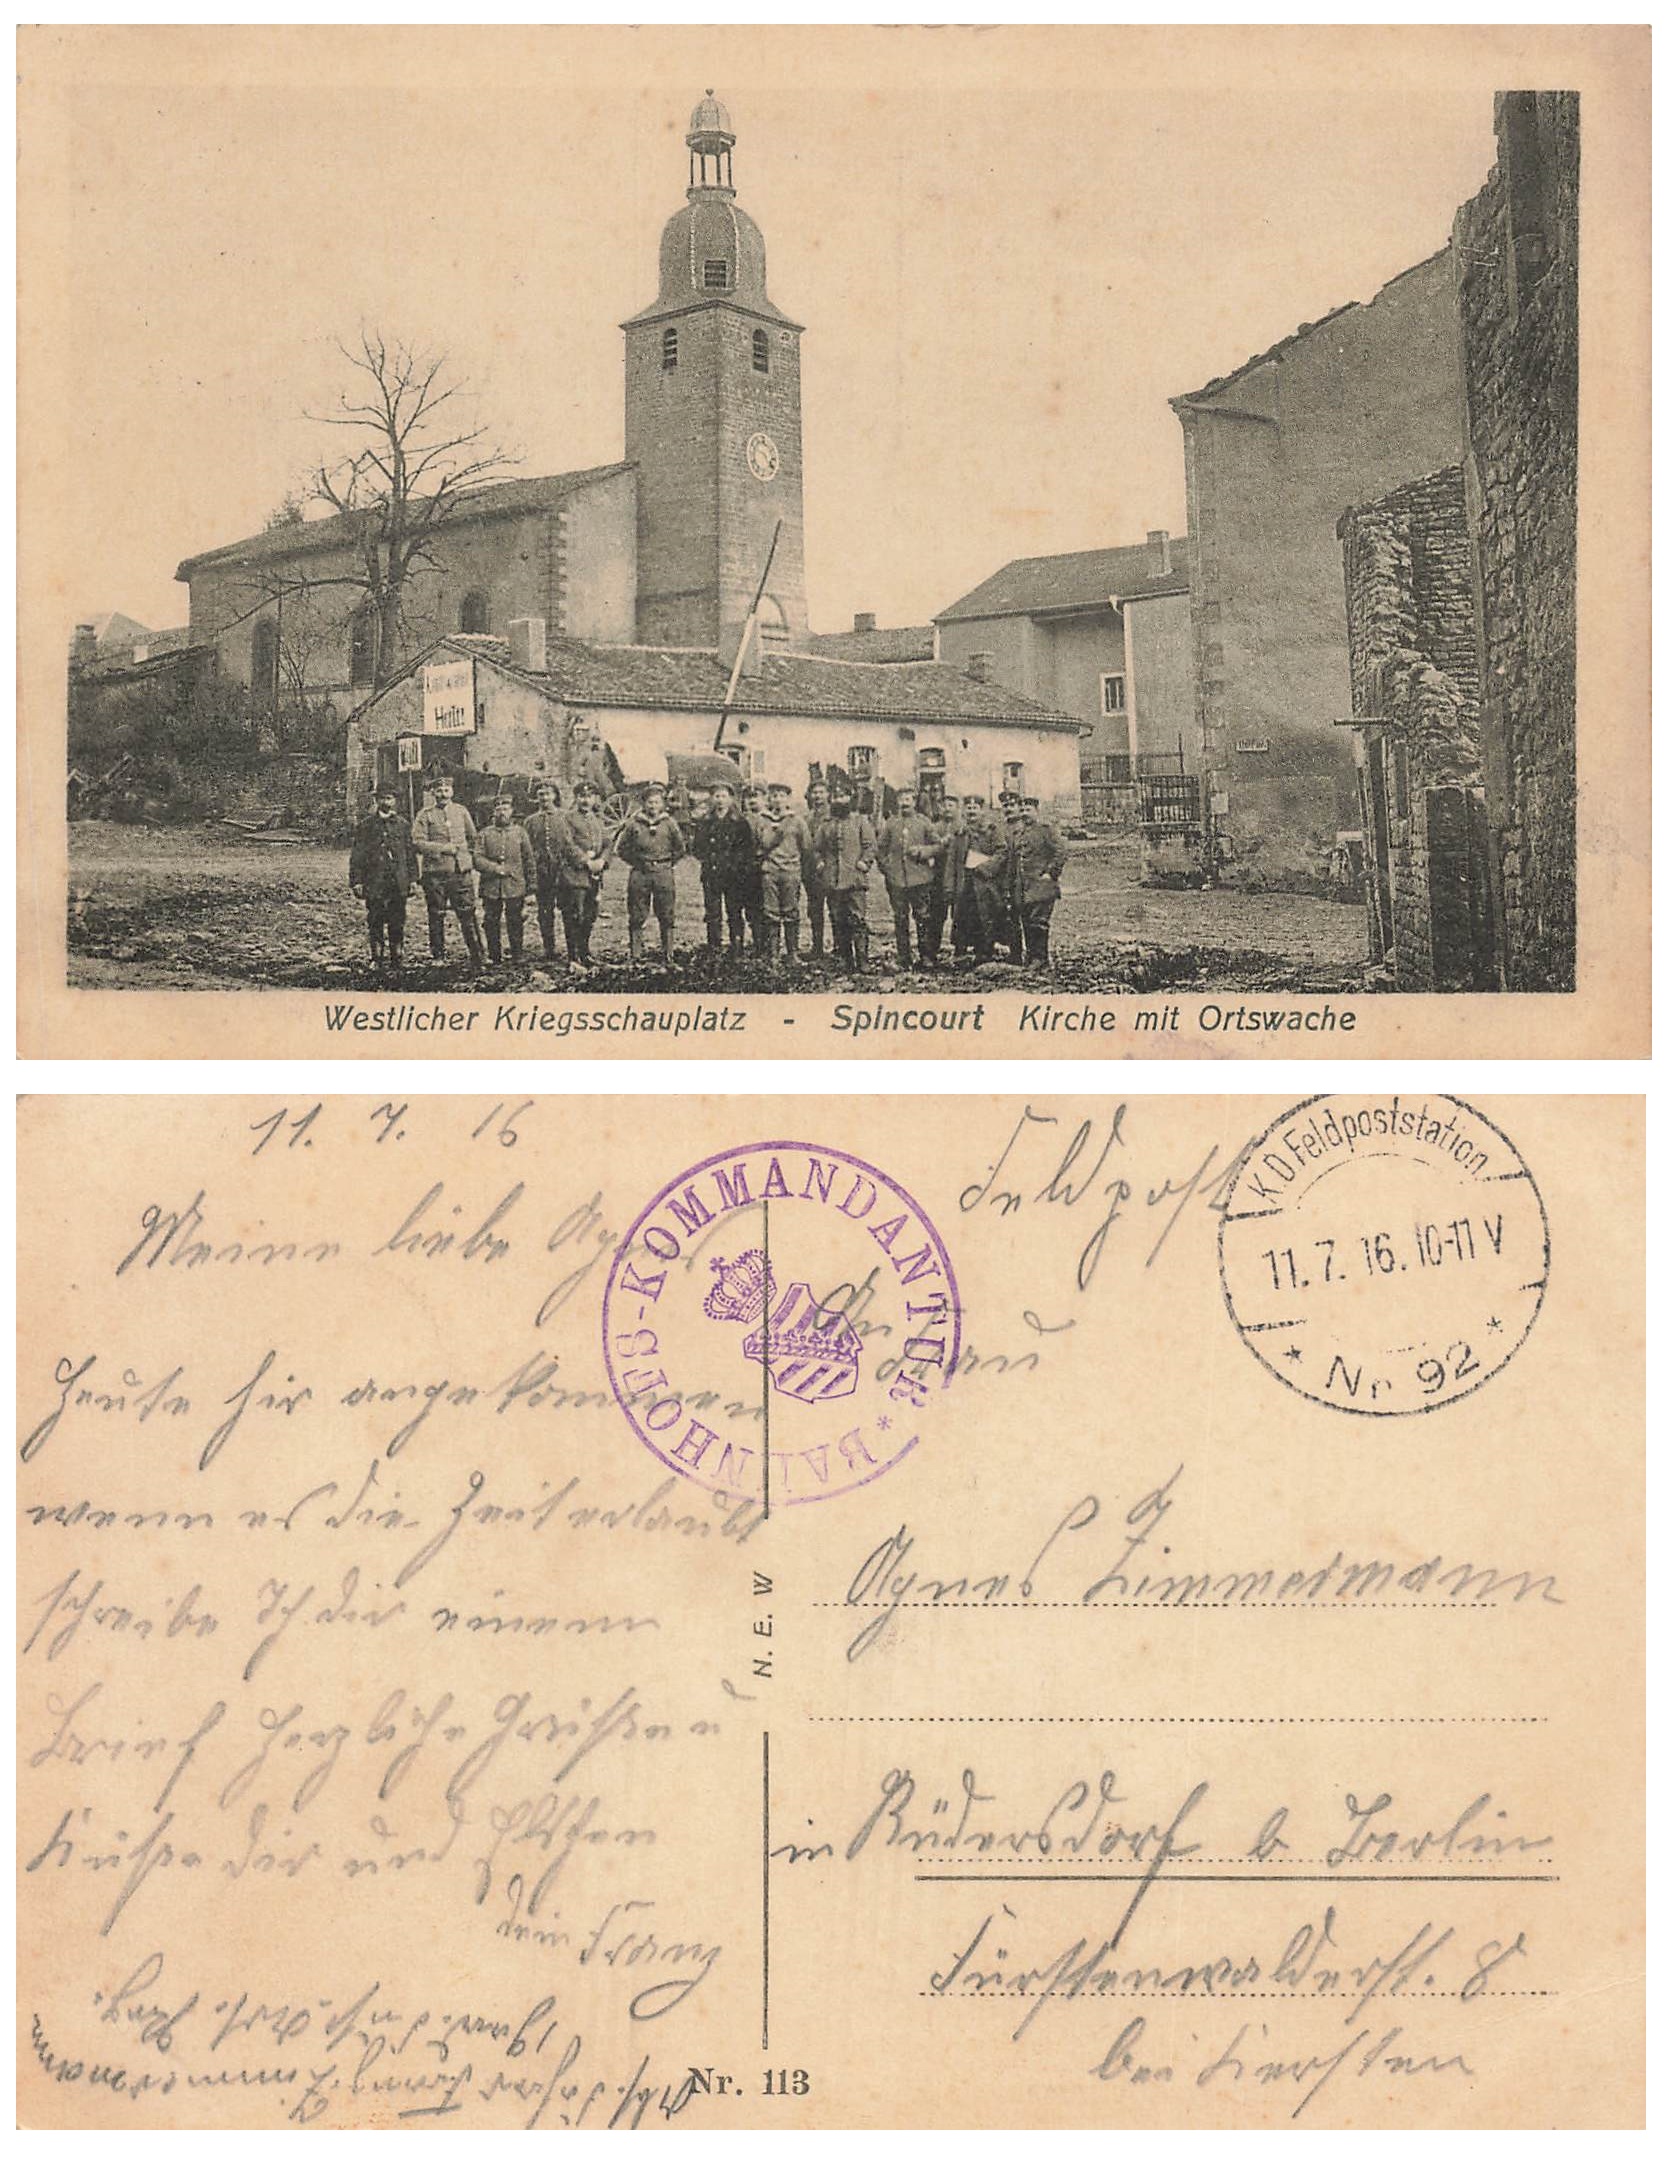 Halt!
Halt
Westlicher Kriegsschauplatz - Spincourt Kirche mit Ortswache
11. 7. 16
Meine liebe Agnes
Heute hir angekommen
wenn es die Zeit erlaubt
schreibe Ich dir einem
Brief Herzliche Grüße u
Küße dir und
dein Franz
Abs. Fahrer Franz Zimmermann
BAHNHOFS-KOMMANDANTUR *
Feldpost
K.D. Feldpoststation
11.7.16. 10-11 V
* Nr 92 *
An Frau
Agnes Zimmermann
in Rüdersdorf b Berlin
Fürstenwalderst. 8
bei Kiersten
N. E. W
Nr. 113